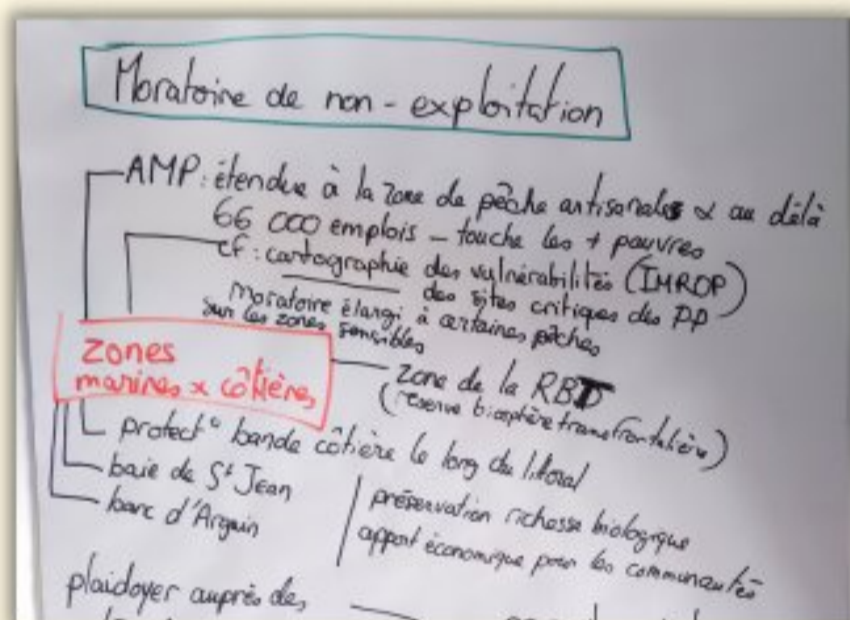 Moratoire de non-exploitation
AMP : étendue à la zone de pêche artisanales & au délà
66 000 emplois – touche les + pauvres
cf : cartographie des vulnérabilités (IMROP)
des sites critiques des PP
Moratoire élargi à certaines pêches
sur les zones sensibles
zones
marines & côtières
zone de la RBT
(réserve biosphère transfrontalière)
protect° bande côtière le long du littoral
baie de St Jean
banc d'Arguin
préservation richesse biologique
apport économique pour les communautés
plaidoyer auprès des